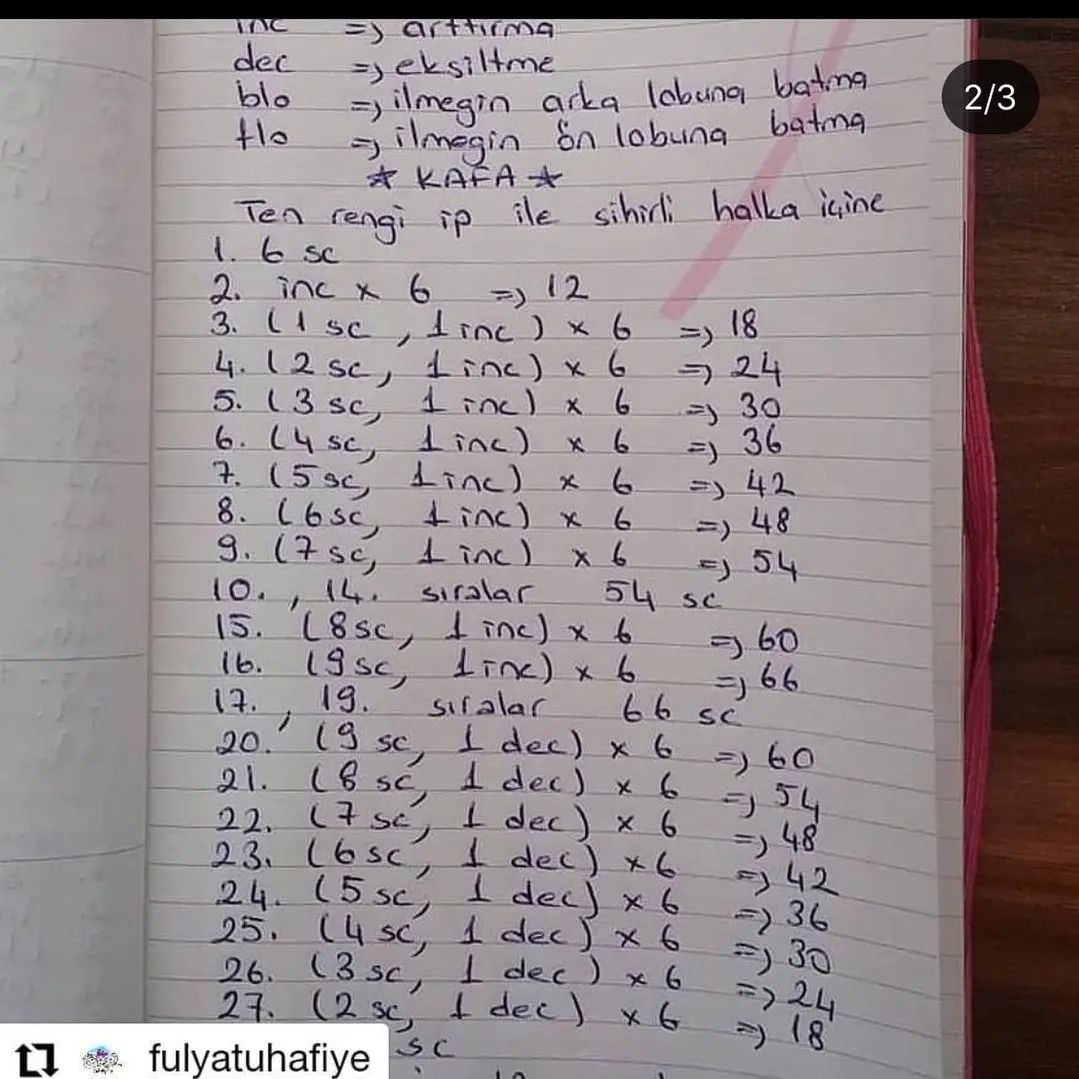 inc => arttırma
dec => eksiltme
blo => ilmegin arka lobuna batma
flo => ilmegin ön lobuna batma
2/3
* KAFA *
Ten rengi ip ile sihirli halka içine
1. 6 sc
2. inc x 6 => 12
3. (1 sc, 1 inc) x 6 => 18
4. (2 sc, 1 inc) x 6 => 24
5. (3 sc, 1 inc) x 6 => 30
6. (4 sc, 1 inc) x 6 => 36
7. (5 sc, 1 inc) x 6 => 42
8. (6 sc, 1 inc) x 6 => 48
9. (7 sc, 1 inc) x 6 => 54
10. , 14. sıralar 54 sc
15. (8 sc, 1 inc) x 6 => 60
16. (9 sc, 1 inc) x 6 => 66
17. , 19. sıralar 66 sc
20. (9 sc, 1 dec) x 6 => 60
21. (8 sc, 1 dec) x 6 => 54
22. (7 sc, 1 dec) x 6 => 48
23. (6 sc, 1 dec) x 6 => 42
24. (5 sc, 1 dec) x 6 => 36
25. (4 sc, 1 dec) x 6 => 30
26. (3 sc, 1 dec) x 6 => 24
27. (2 sc, 1 dec) x 6 => 18
sc
fulyatuhafiye